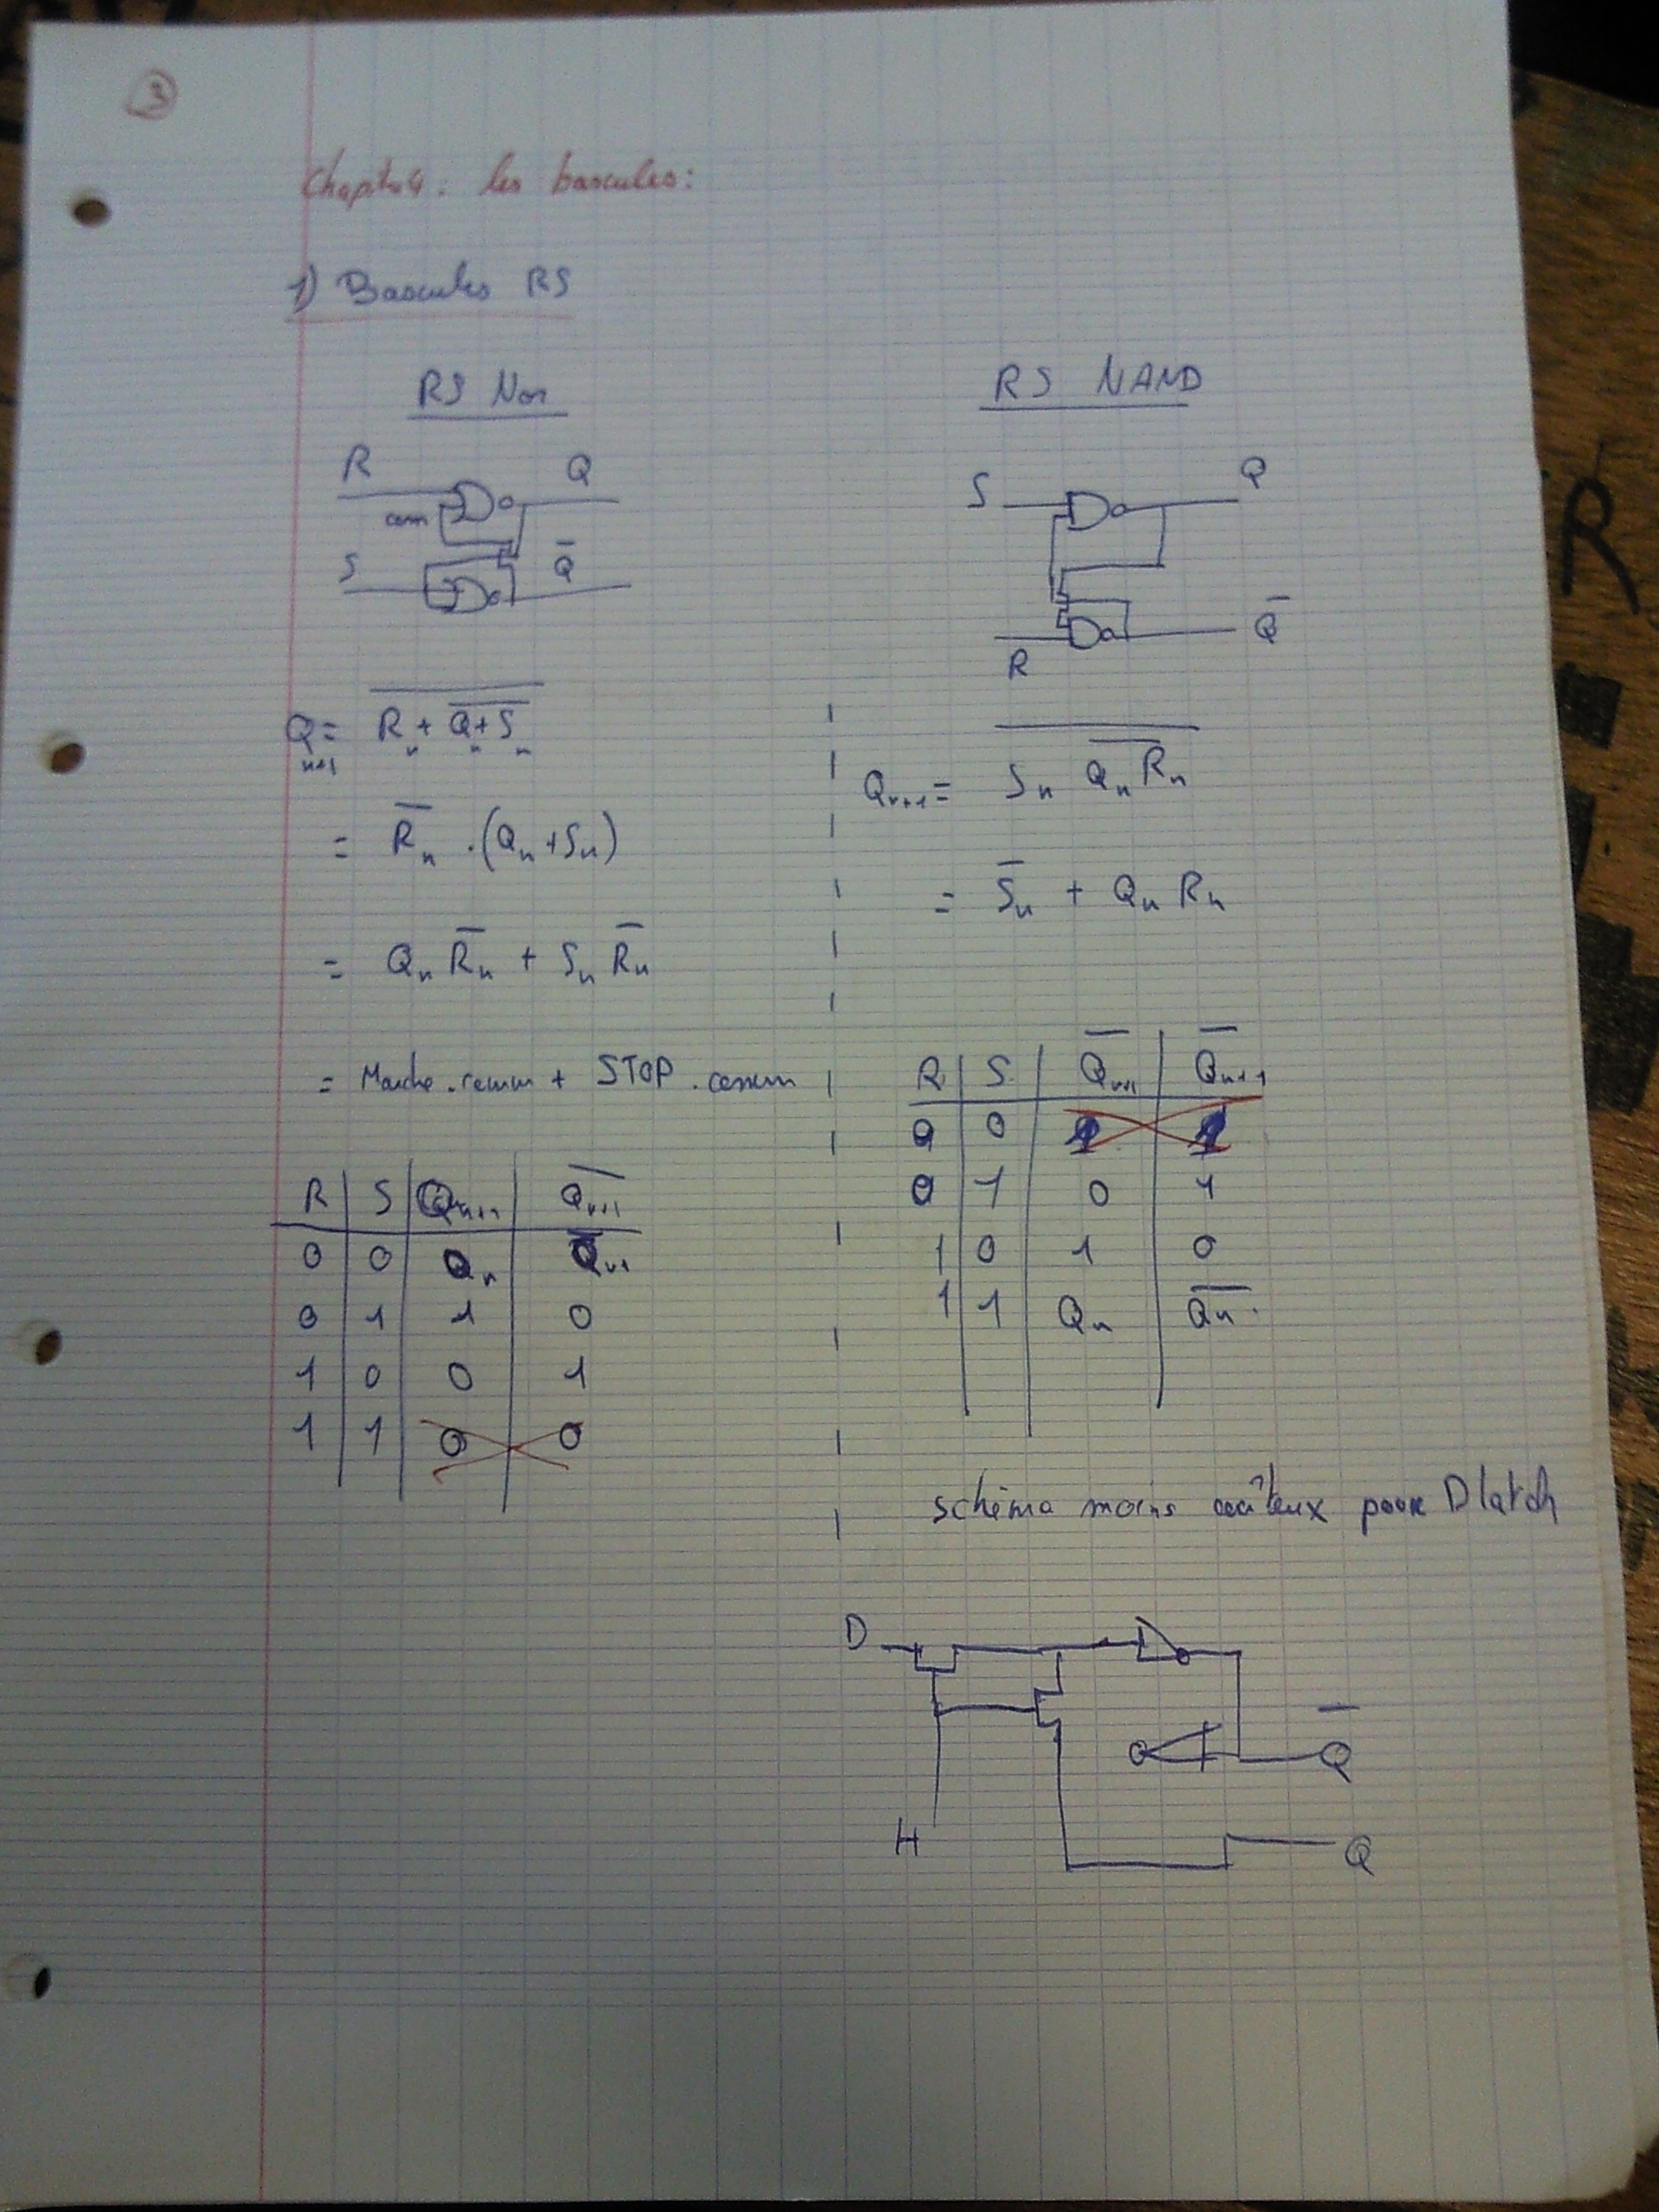 3
Chapitre 4 : les bascules :
1) Bascules RS
RS Nor
R Q
S Q̅
Qₙ₊₁ = \overline{Rₙ + \overline{Qₙ + Sₙ}}
= \overline{Rₙ} . (Qₙ + Sₙ)
= Qₙ \overline{Rₙ} + Sₙ \overline{Rₙ}
= Marche . + STOP .
R | S | Qₙ₊₁ | \overline{Qₙ₊₁}
0 | 0 | Qₙ |
0 | 1 | 1 | 0
1 | 0 | 0 | 1
1 | 1 | 0 | 0
RS NAND
S Q
R Q̅
Qₙ₊₁ = \overline{Sₙ \overline{Qₙ Rₙ}}
= \overline{Sₙ} + Qₙ Rₙ
R | S | \overline{Qₙ₊₁} | \overline{Qₙ₊₁}
0 | 0 | 1 | 1
0 | 1 | 0 | 1
1 | 0 | 1 | 0
1 | 1 | Qₙ | \overline{Qₙ}
schéma moins coûteux pour D latch
D
Q̅
H
Q
R